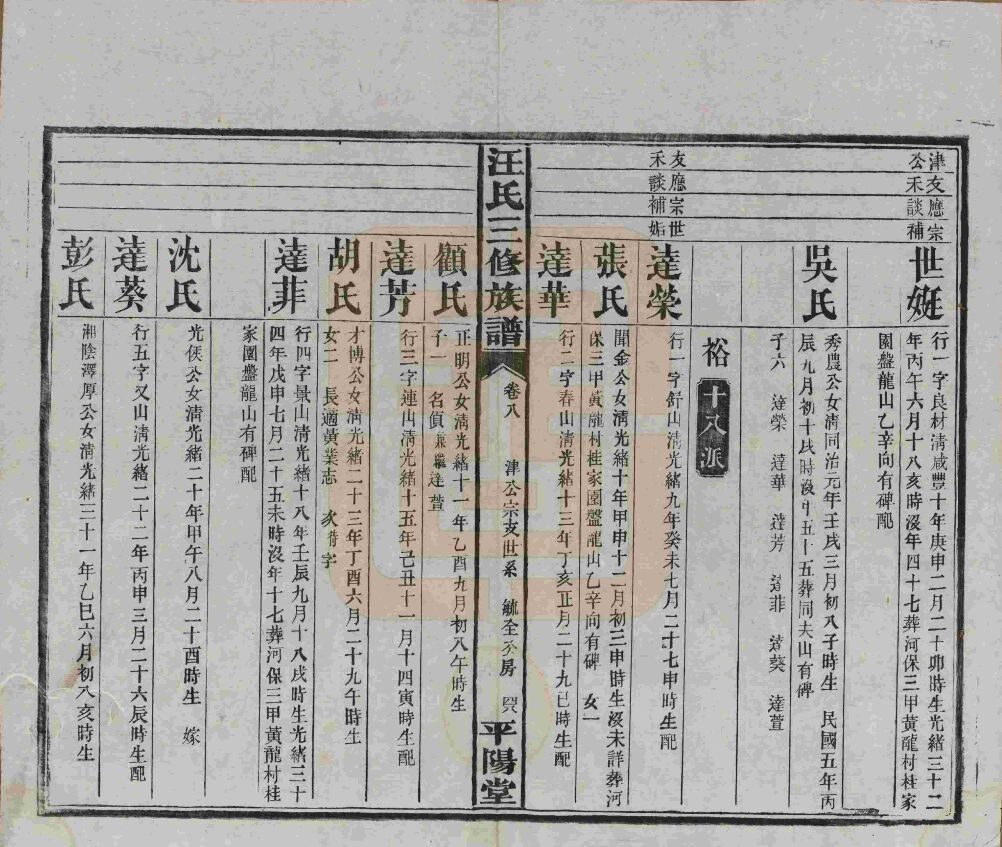 津友應宗
公禾談補
世娗
行一字良材淸咸豐十年庚申二月二十卯時生光緒三十二
年丙午六月十八亥時沒年四十七葬河保三甲黃龍村桂家
園盤龍山乙辛向有碑配
吳氏
秀農公女淸同治元年壬戌三月初八子時生 民國五年丙
辰九月初十戌時沒年五十五葬同夫山有碑
子六 達榮 達華 達芳 達菲 達葵 達萱
裕十八派
友應宗世
禾談補姤
達榮
行一字舒山淸光緒九年癸未七月二十七申時生配
張氏
聞金公女淸光緒十年甲申十二月初三申時生沒未詳葬河
保三甲黃龍村桂家園盤龍山乙辛向有碑 女一
達華
行二字春山淸光緒十三年丁亥正月二十九巳時生配
汪氏三修族譜
卷八
津公宗支世系 毓全公房
平陽堂
顧氏
正明公女淸光緒十一年乙酉九月初八午時生
子一 名偵兼繼達萱
達芳
行三字連山淸光緒十五年己丑十一月十四寅時生配
胡氏
才博公女淸光緒二十三年丁酉六月二十九午時生
女二 長適黃業志 次待字
達菲
行四字景山淸光緒十八年壬辰九月十八戌時生光緒三十
四年戊申七月二十五未時沒年十七葬河保三甲黃龍村桂
家園盤龍山有碑配
沈氏
光俠公女淸光緒二十年甲午八月二十酉時生 嫁
達葵
行五字又山淸光緒二十二年丙申三月二十六辰時生配
彭氏
湘陰澤厚公女淸光緒三十一年乙巳六月初八亥時生